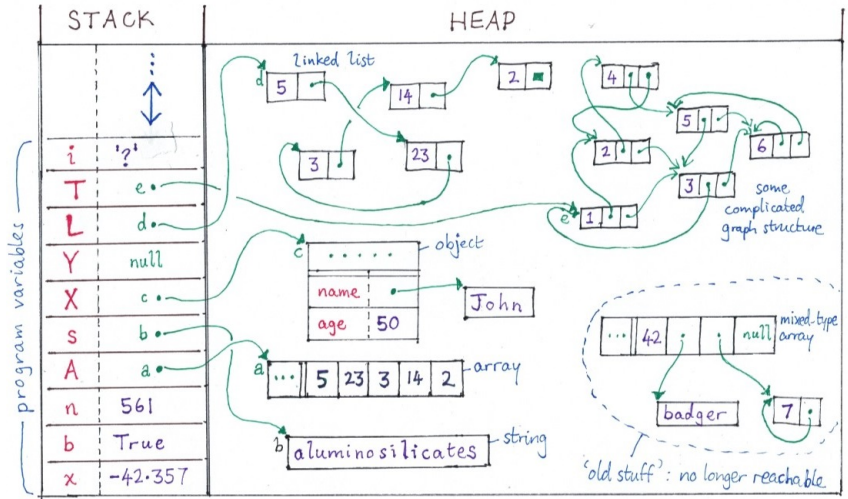 STACK
HEAP
program variables
i '?'
T e
L d
Y null
X c
s b
A a
n 561
b True
x -42.357
linked list
d 5
14
2
3
23
4
5
6
2
3
e 1
some
complicated
graph structure
c
object
.....
name
John
age 50
a ... 5 23 3 14 2
array
b aluminosilicates
string
... 42 null
mixed-type
array
badger
7
'old stuff': no longer reachable